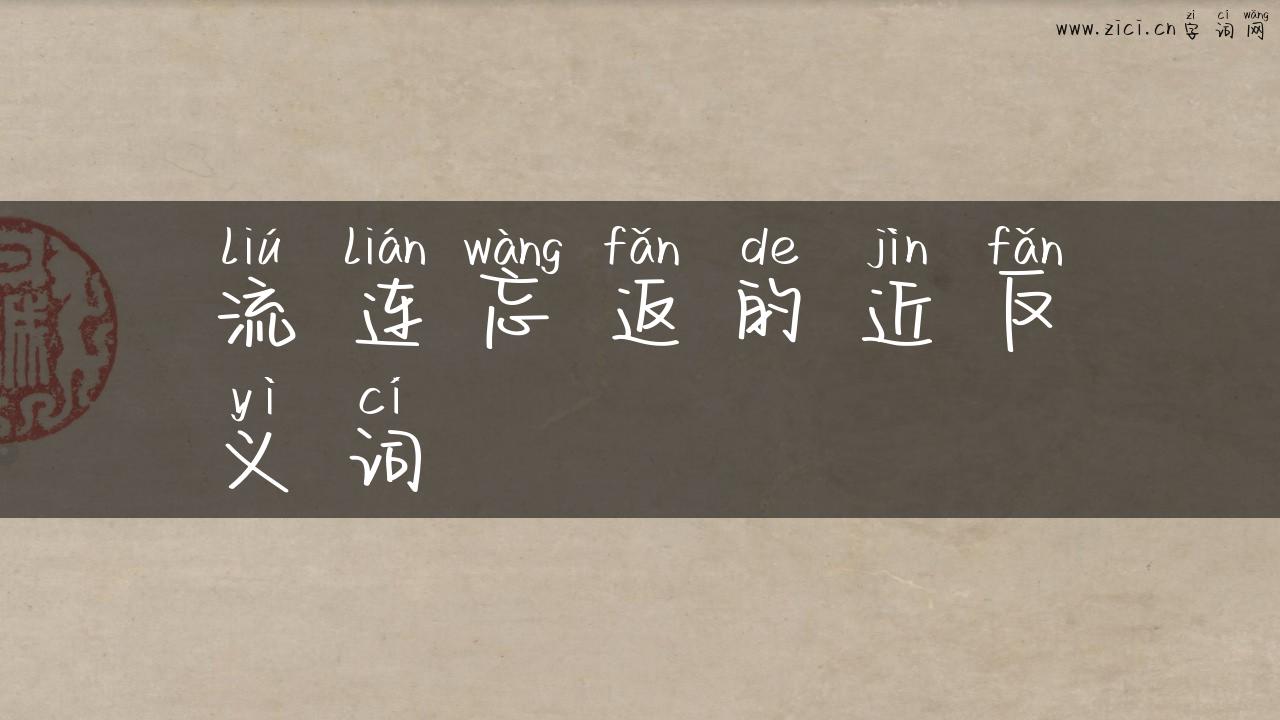 zì cí wǎng
www.zici.cn 字词网
liú lián wàng fǎn de jìn fǎn
流连忘返的近反
yì cí
义词